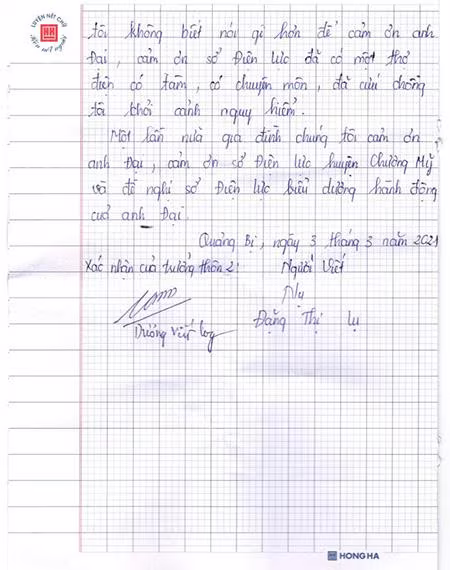 LUYỆN NÉT CHỮ
HH
RÈN NẾT NGƯỜI
tôi không biết nói gì hơn để cảm ơn anh
Đại, cảm ơn sở Điện lực đã có một thợ
điện có tâm, có chuyên môn, đã cứu chồng
tôi khỏi cảnh nguy hiểm.
Một lần nữa gia đình chúng tôi cảm ơn
anh Đại, cảm ơn sở Điện lực huyện Chương Mỹ
và đề nghị sở Điện lực biểu dương hành động
của anh Đại.
Quảng Bị, ngày 3 tháng 3 năm 2021
Xác nhận của trưởng thôn 2: Người Viết
Đặng Thị Lụ
Dương Viết
HH HONG HA